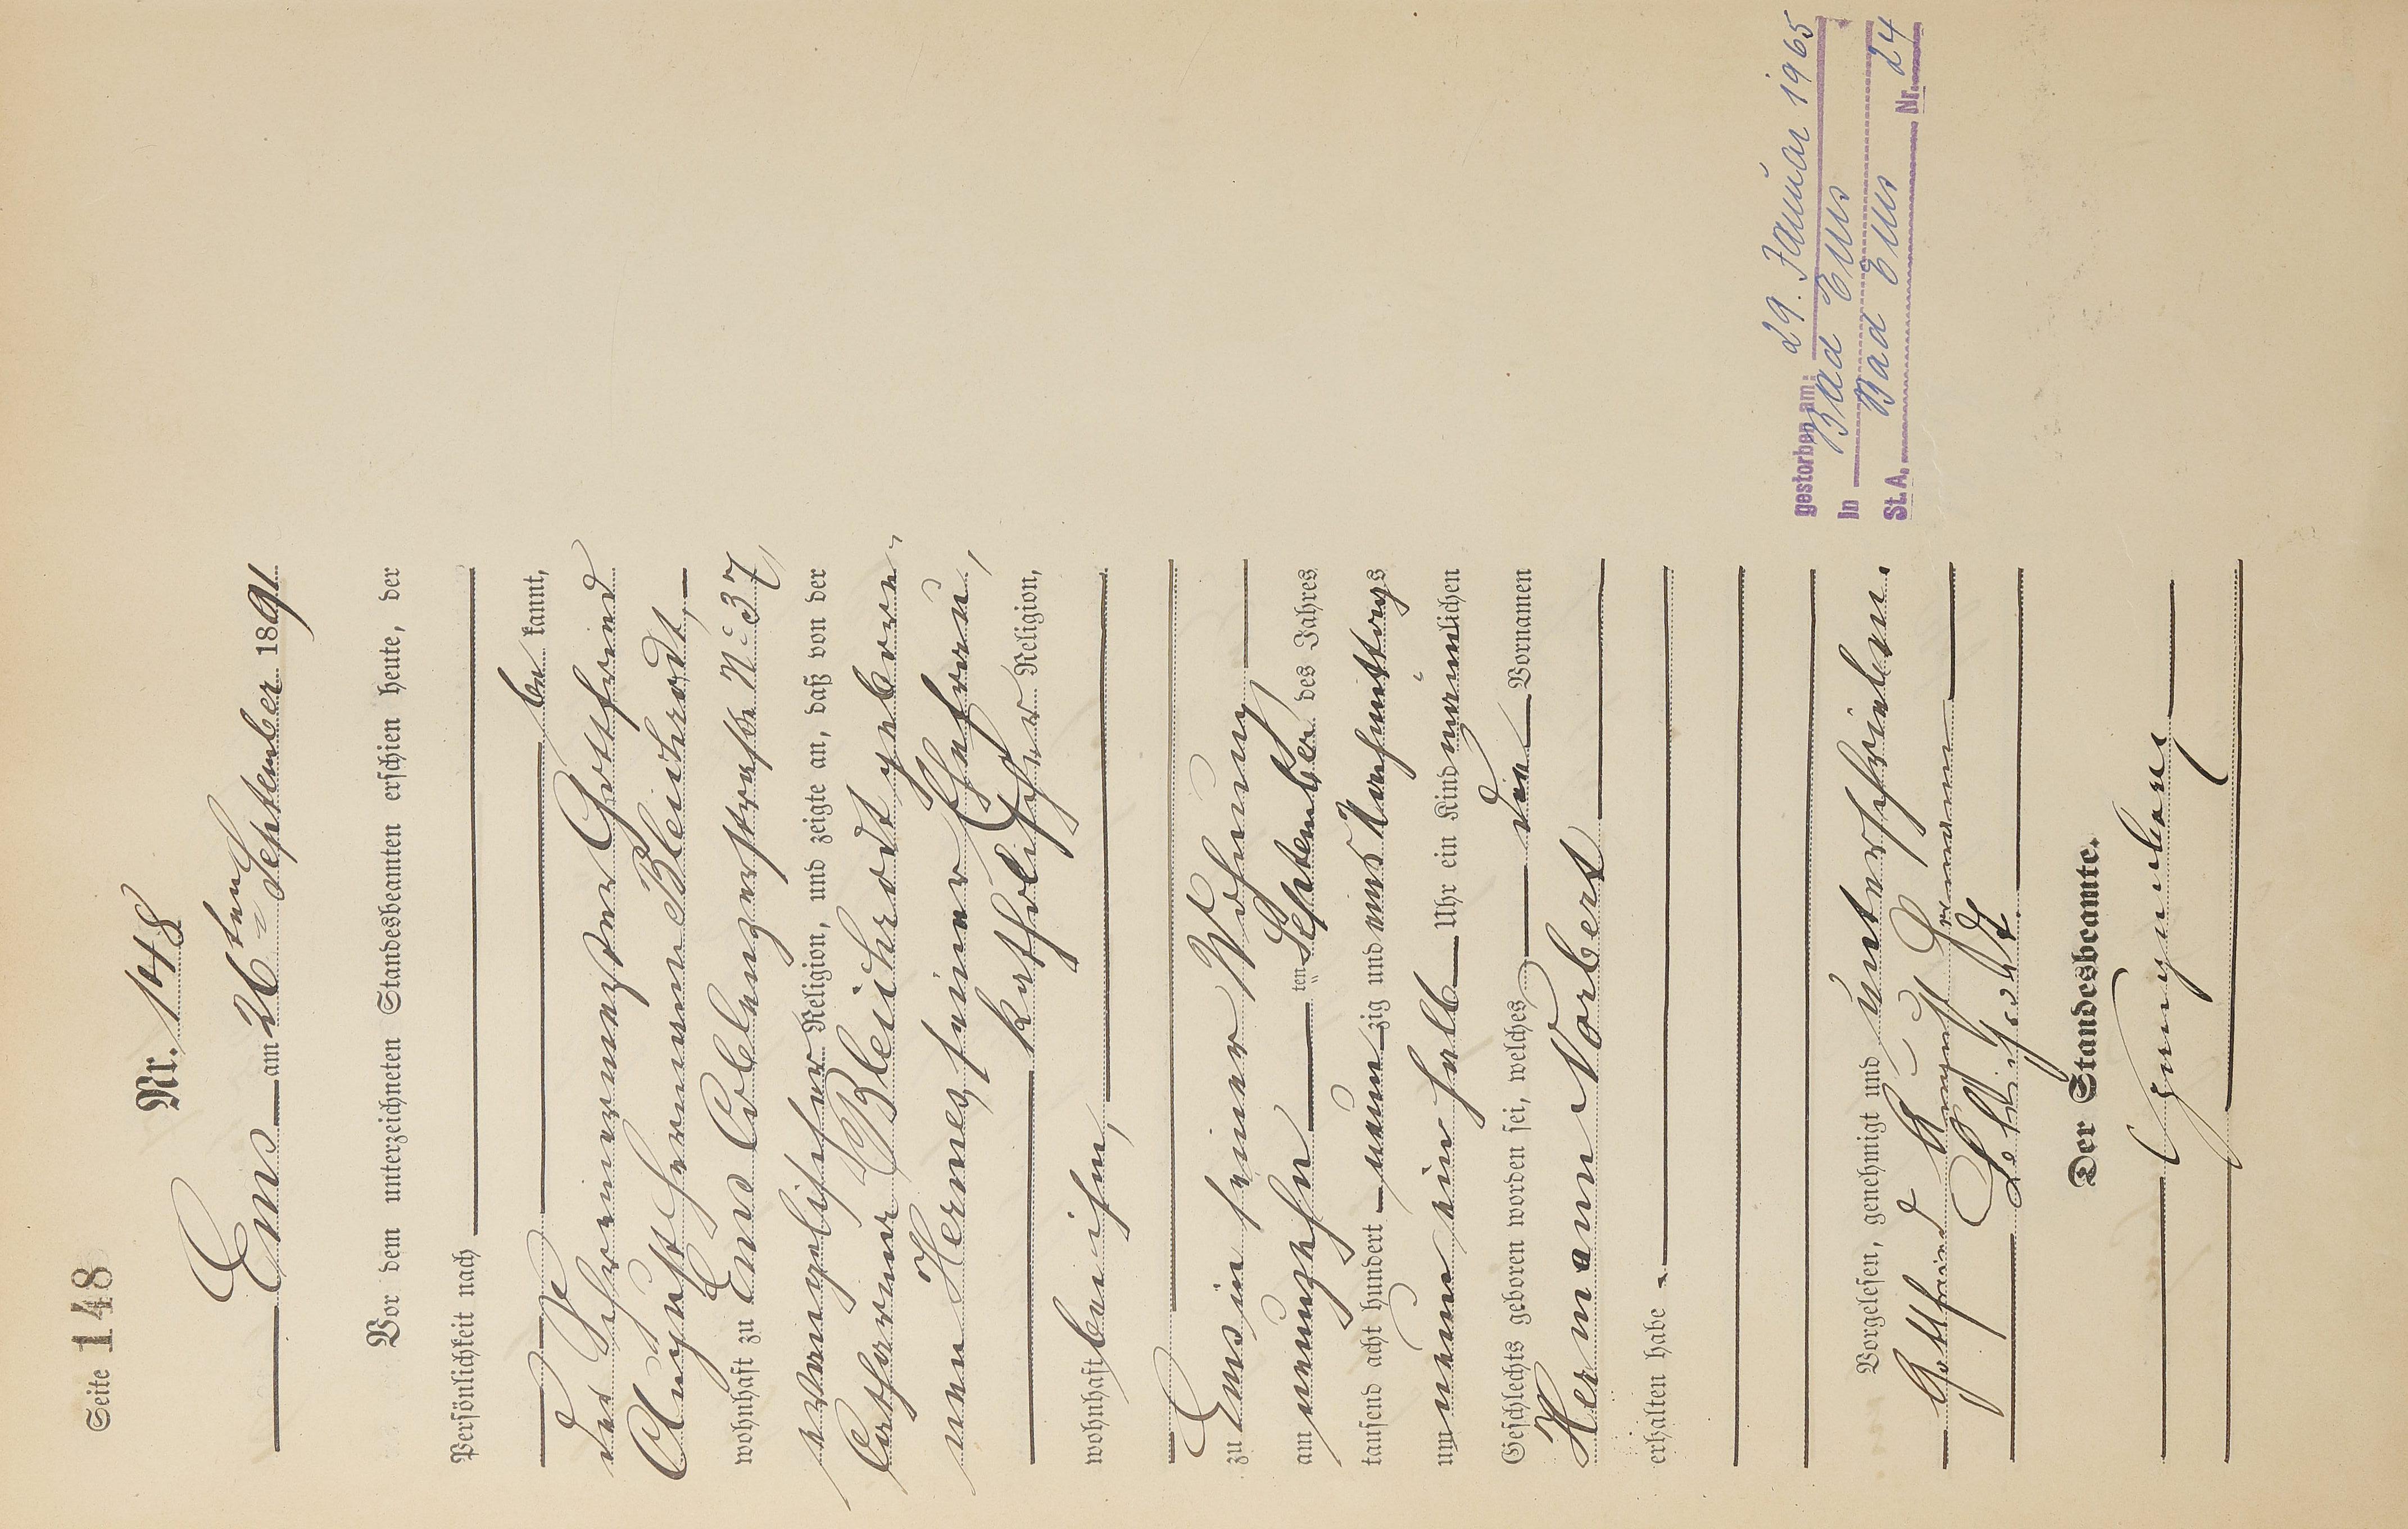 Seite 148
Nr. 148
Ems am 26ten September 1891
Vor dem unterzeichneten Standesbeamten erschien heute, der
Persönlichkeit nach
be kannt,
der Schreinermeister Gottfried
August Hermann Bleichrodt,
wohnhaft zu Ems Coblenzerstraße No 37,
evangelischer Religion, und zeigte an, daß von der
Catharina Bleichrodt gebore-
nen Hermes seiner Ehefrau,
katholischer Religion,
wohnhaft bei ihm,
zu Ems in seiner Wohnung
am neunzehn ten September des Jahres
tausend acht hundert neun zig und eins Nachmittags
um neun ein halb Uhr ein Kind männlichen
Geschlechts geboren worden sei, welches die Vornamen
Hermann Norbert
erhalten habe.
Vorgelesen, genehmigt und unterschrieben.
Gottfried August Hermann
Bleichrodt.
Der Standesbeamte.
gestorben am: 29. Januar 1965
in Bad Ems
St. A. Bad Ems Nr. 24